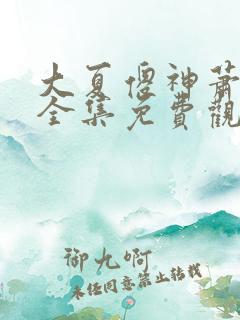 大夏傻神萧
全集免費觀
御九啊
未经同意禁止转载